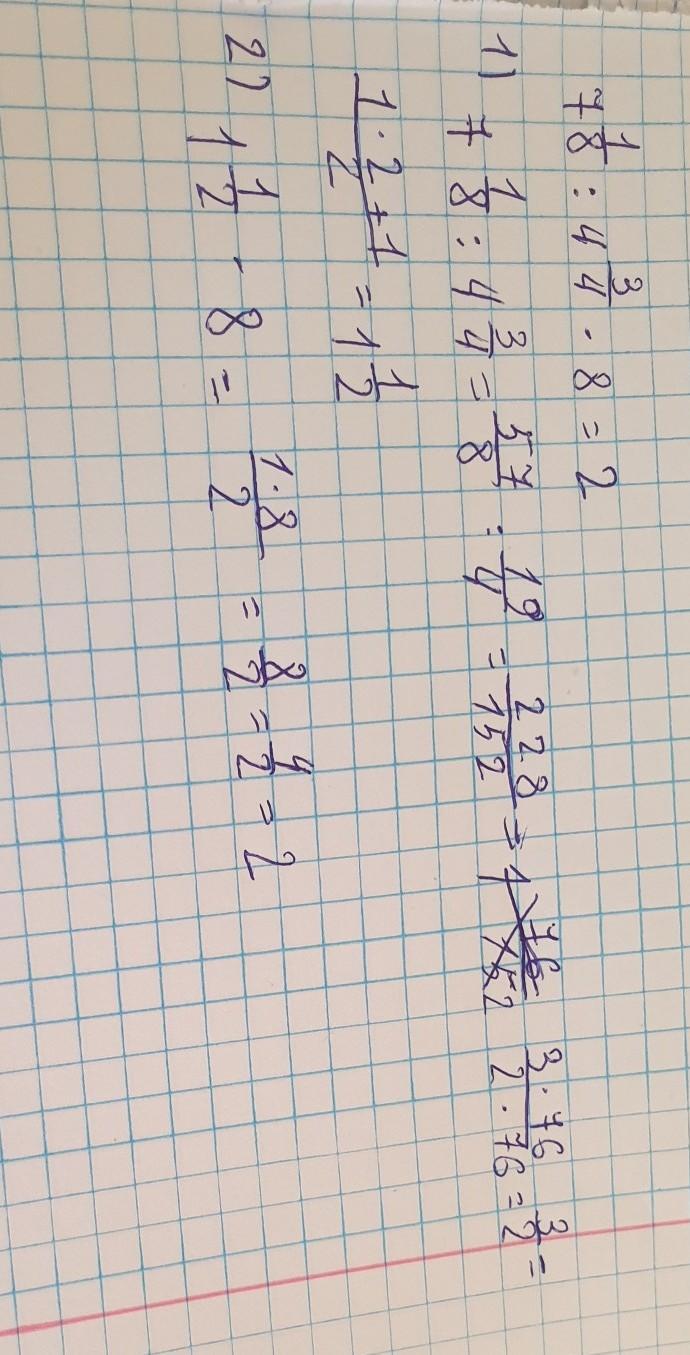 7 1/8 : 4 3/4 · 8 = 2
1) 7 1/8 : 4 3/4 = 57/8 : 19/4 = 228/152 = 1 76/152 3·76/2·76 = 3/2 =
1·2+1/2 = 1 1/2
2) 1 1/2 · 8 = 1·8/2 = 8/2 = 4/2 = 2